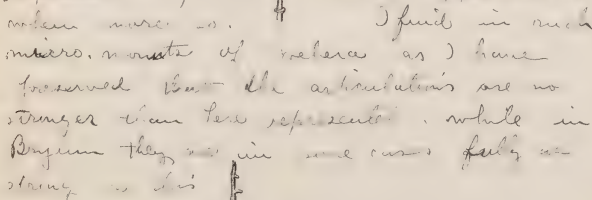 I find in such
micro. mounts of as I have
preserved that the articulations are no
stronger than here represented, while in
Bryum they in some cases fully as
strong as this